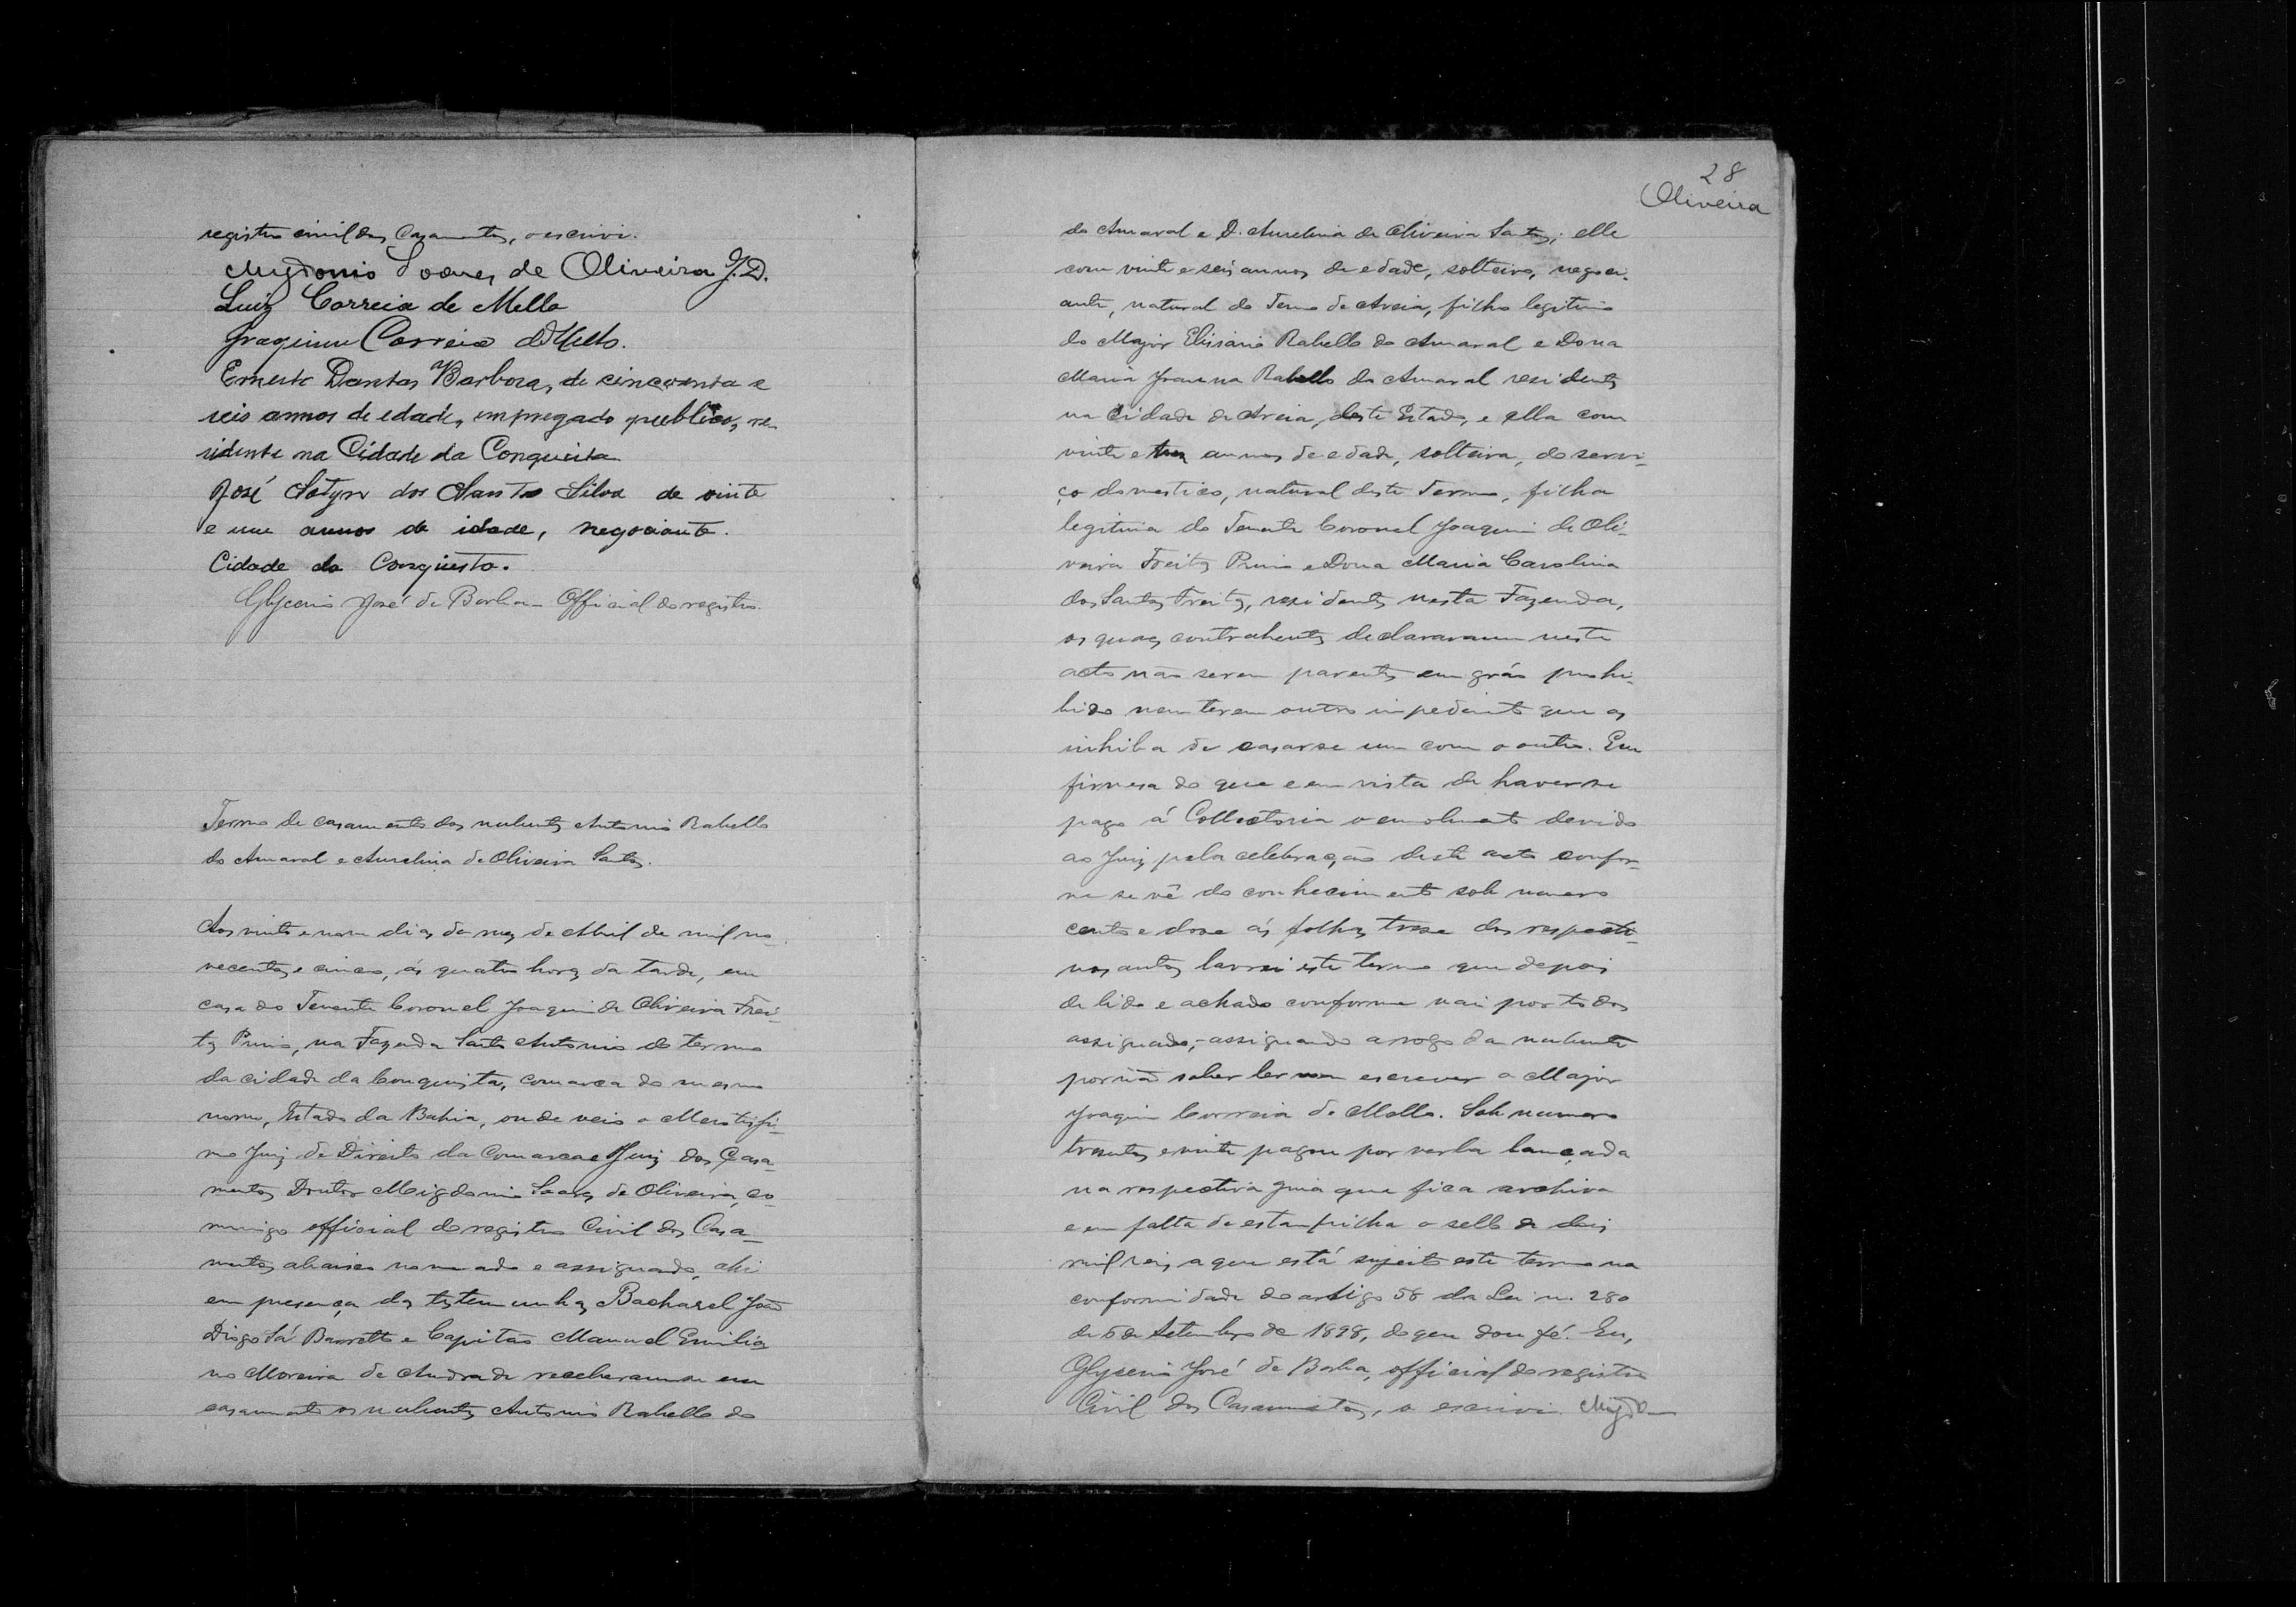 registro civil dos Casamentos, o escrivi.
Mygdonio Soares de Oliveira J.D.
Luiz Correia de Mello
Joaquim Correia de Mello.
Ernesto Dantas Barbosa, de cincoenta e
seis annos de edade, empregado publico, re-
sidente na Cidade da Conquista
José Satyro dos Santos Silva de vinte
e um annos de idade, negociante.
Cidade da Conquista.
Glycerio José de Borba - Official do registro.
Termo de casamento dos nubentes Antonio Rabello
do Amaral e Aurelina de Oliveira Santos.
Aos vinte e nove dias do mez de Abril de mil no-
vecentos e cinco, ás quatro horas da tarde, em
casa do Tenente Coronel Joaquim de Oliveira Frei-
tas Primo, na Fazenda Santo Antonio do termo
da cidade da Conquista, comarca do mesmo
nome, Estado da Bahia, onde veio o Meretissi-
mo Juiz de Direito da Comarca e Juiz dos Casa-
mentos, Doutor Migdonio Soares de Oliveira, co-
mmigo official do registro Civil dos Casa-
mentos abaixo nomeado e assignado, ahi
em presença das testemunhas Bacharel João
Diogo Sá Barretto e Capitão Manuel Emilia
no Moreira de Andrade receberam-se em
casamento os nubentes Antonio Rabello do
28
Oliveira
do Amaral e D. Aurelina de Oliveira Santos; elle
com vinte e seis annos de edade, solteiro, negoci-
ante, natural do Termo de Areia, filho legitimo
do Major Elisiario Rabello do Amaral e Dona
Maria Joanna Rabello do Amaral residentes
na Cidade de Areia, deste Estado, e ella com
vinte e tres annos de edade, solteira, do servi-
ço domestico, natural deste Termo, filha
legitima do Tenente Coronel Joaquim de Oli-
veira Freitas Primo e Dona Maria Carolina
dos Santos Freitas, residentes nesta Fazenda,
os quaes contrahentes declararam neste
acto não serem parentes em gráo prohi-
bido nem terem outro impedimento que os
inhiba de casar-se um com o outro. Em
firmesa do que e em vista de haver-se
pago á Collectoria o emolumento devido
ao Juiz pela celebração deste acto confor-
me se vê do conhecimento sob numero
cento e dose ás folhas trese dos respecti-
vos autos lavrei este termo que depois
de lido e achado conforme vai por todos
assignado, assignando a rogo da nubente
por não saber ler nem escrever o Major
Joaquim Correia de Mello. Sob numero
tresentos e vinte pagou por verba lançada
na respectiva guia que fica archiva
e em falta de estampilha o sello de dois
mil reis, a que está sujeito este termo na
conformidade do artigo 58 da Lei n. 280
de 5 de Setembro de 1898, do que dou fé. Eu,
Glycerio José de Borba, official do registro
Civil dos Casamentos, o escrivi.